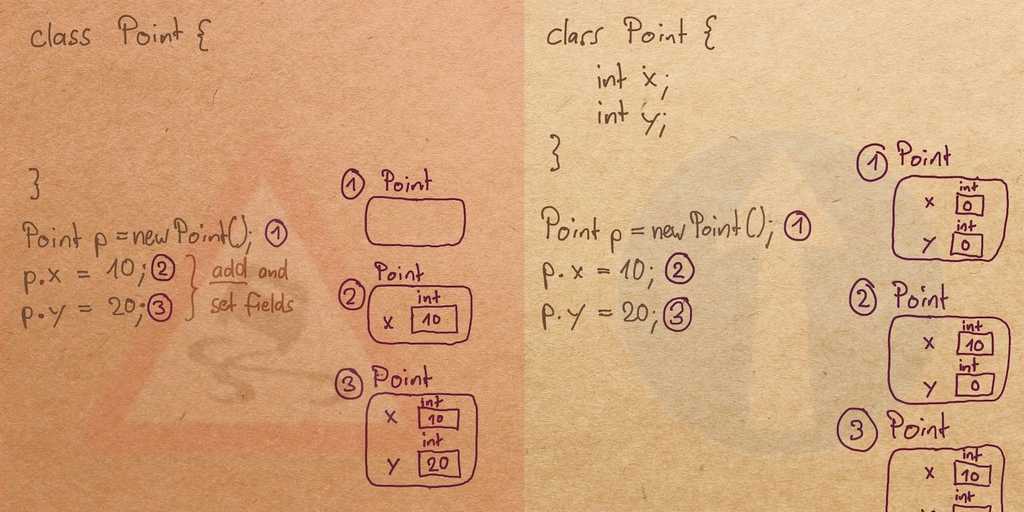 class Point {
}
Point p = new Point(); ①
p.x = 10; ②
p.y = 20; ③
} add and
set fields
① Point
② Point
int
x 10
③ Point
int
x 10
int
y 20
class Point {
int x;
int y;
}
Point p = new Point(); ①
p.x = 10; ②
p.y = 20; ③
① Point
int
x 0
int
y 0
② Point
int
x 10
int
y 0
③ Point
int
x 10
int